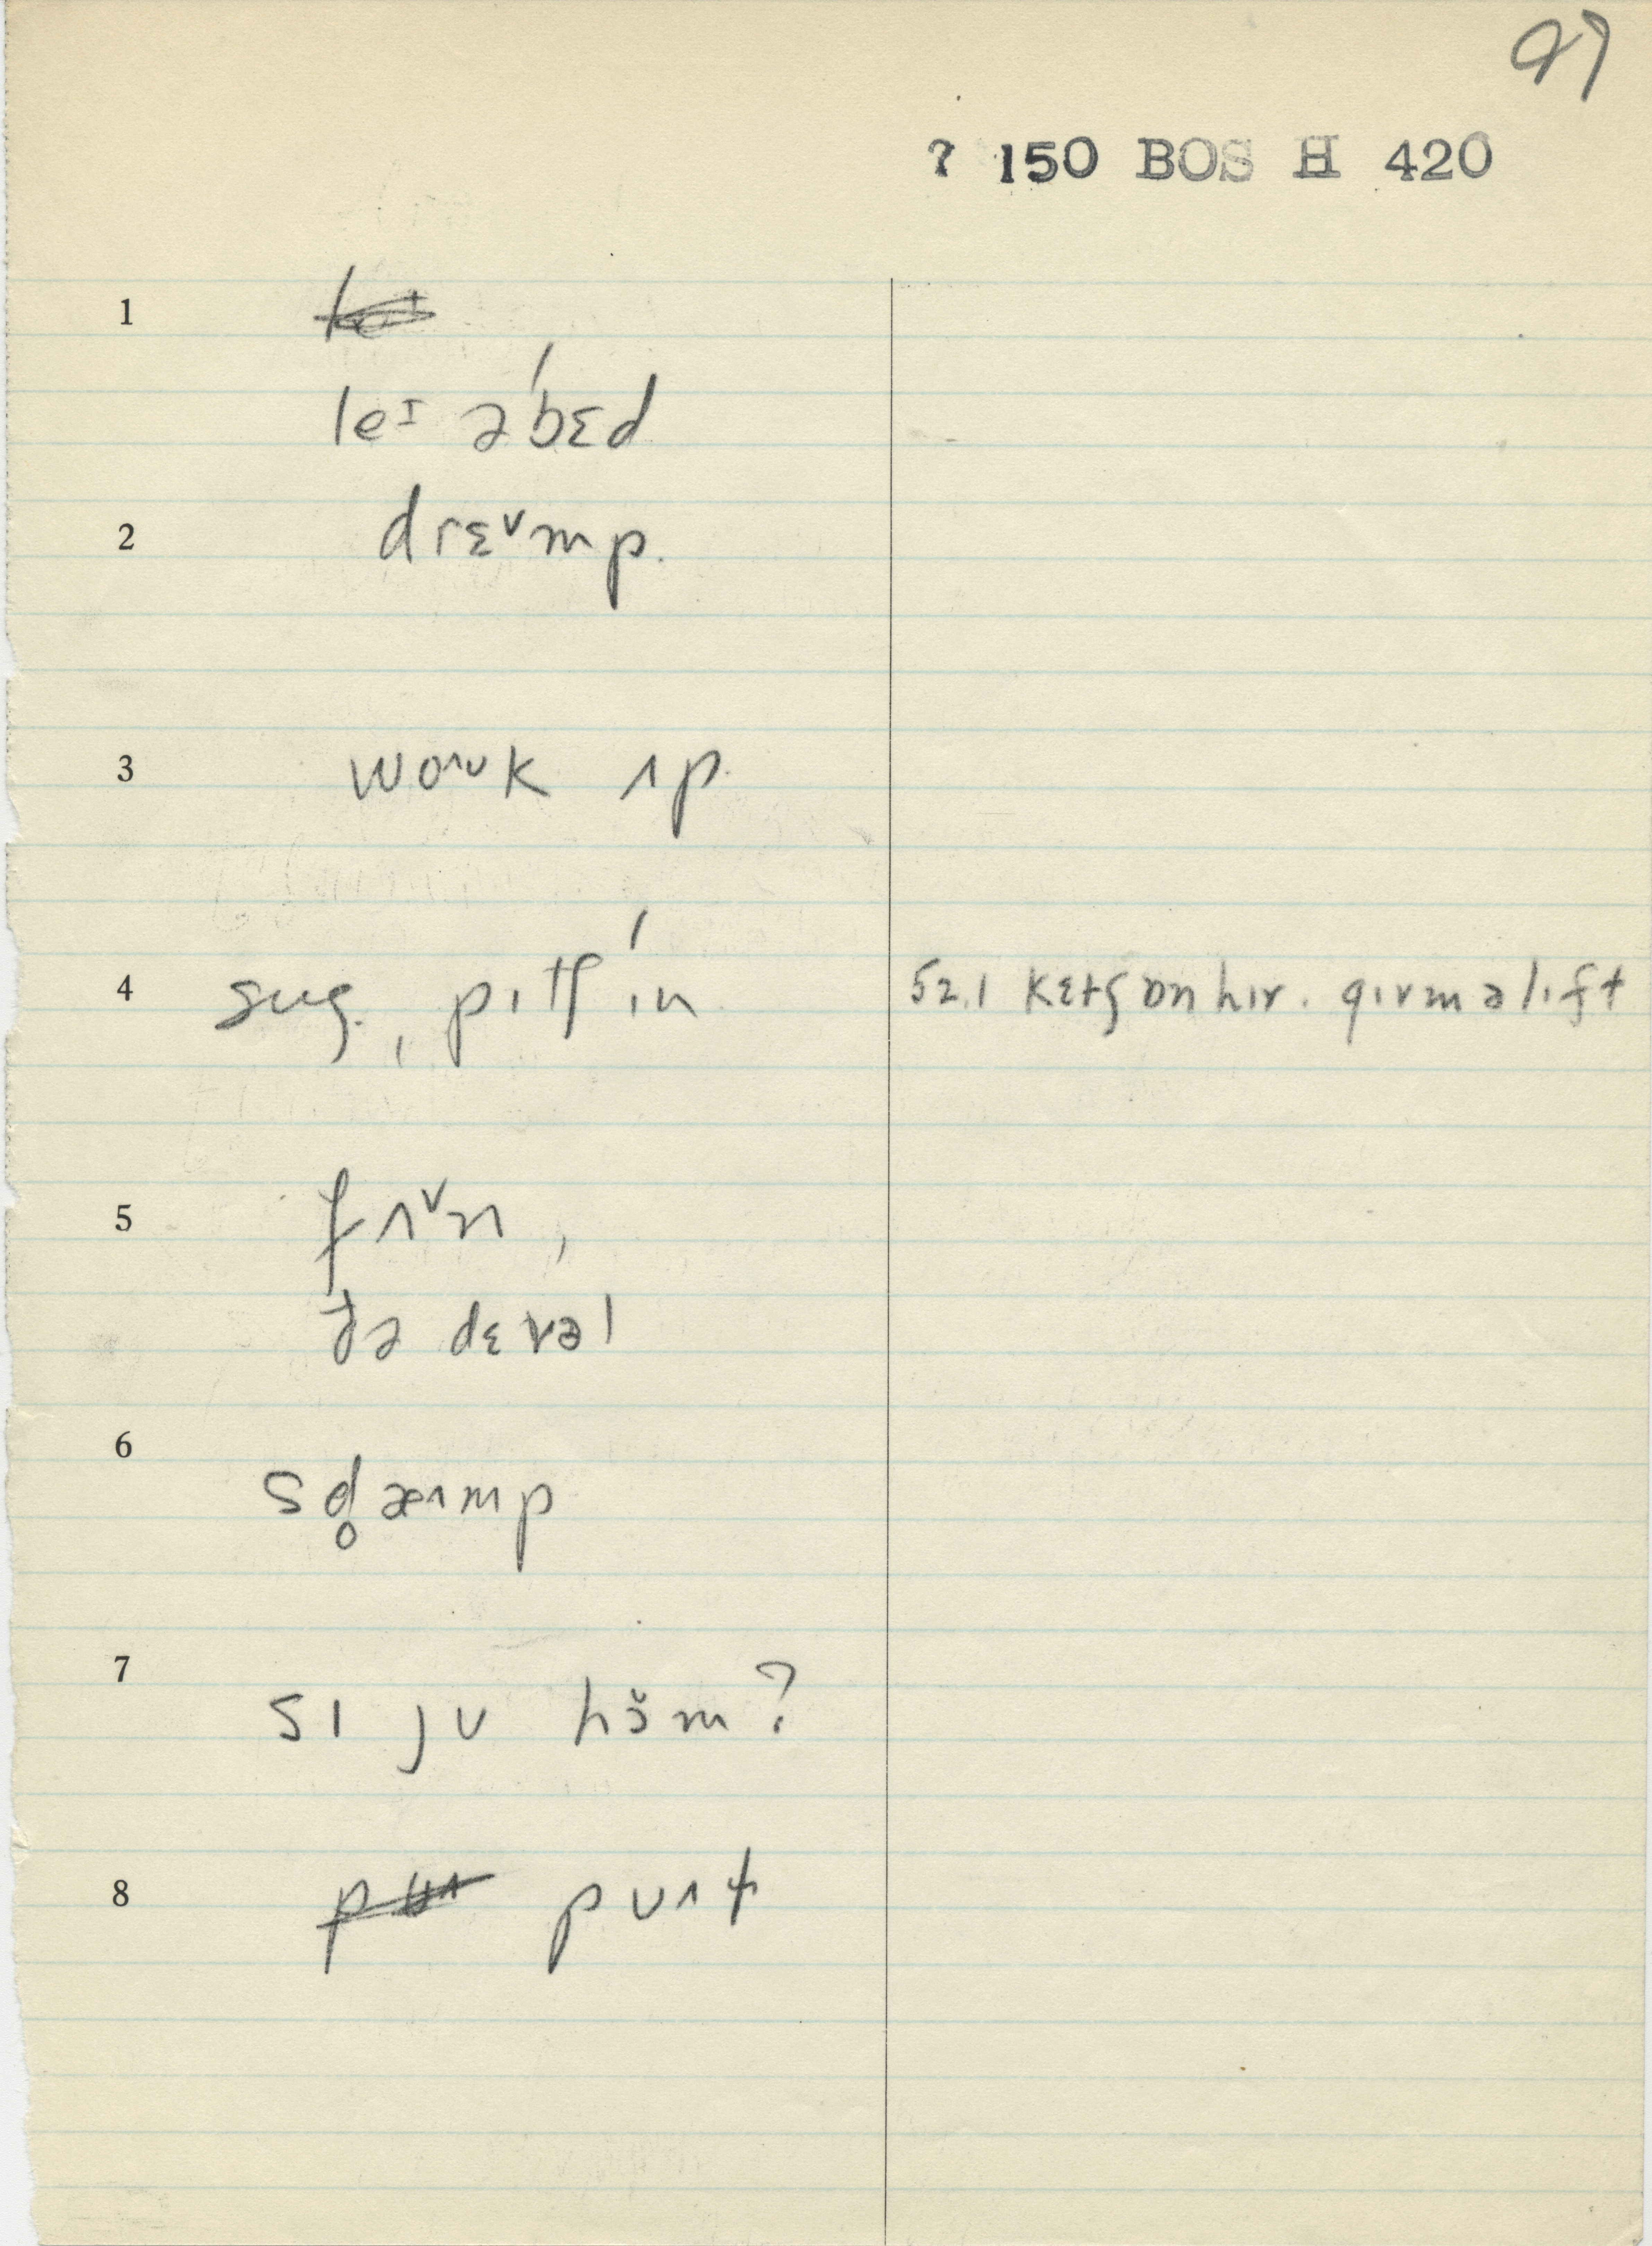 97
? 150 BOS H 420
1
leᶦ əˈbɛd
2 drɛᵛmp.
3 woᶺᵕk ʌp.
4 sug., pɪtʃ ˈɪn 52.1 kɛtʃ ɒn hɪr. gɪv m ə lɪft
5 fʌᵛn,
ðə dɛvəl
6 sd̥æᶺmp
7 sɪ jʊ hɔ̆m?
8 pʊʌt